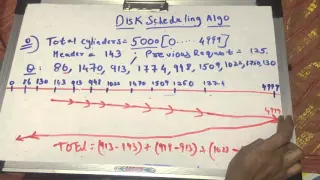 Disk Scheduling Algo
Q) Total Cylinders = 5000 [0.....4999]
Header = 143 / Previous Request = 125.
Q: 86, 1470, 913, 1774, 948, 1509, 1022, 1750, 130
0 86 130 143 913 948 1022 1470 1509 1750 1774 4999
4999
Total = (913-143) + (948-913) + (1022-